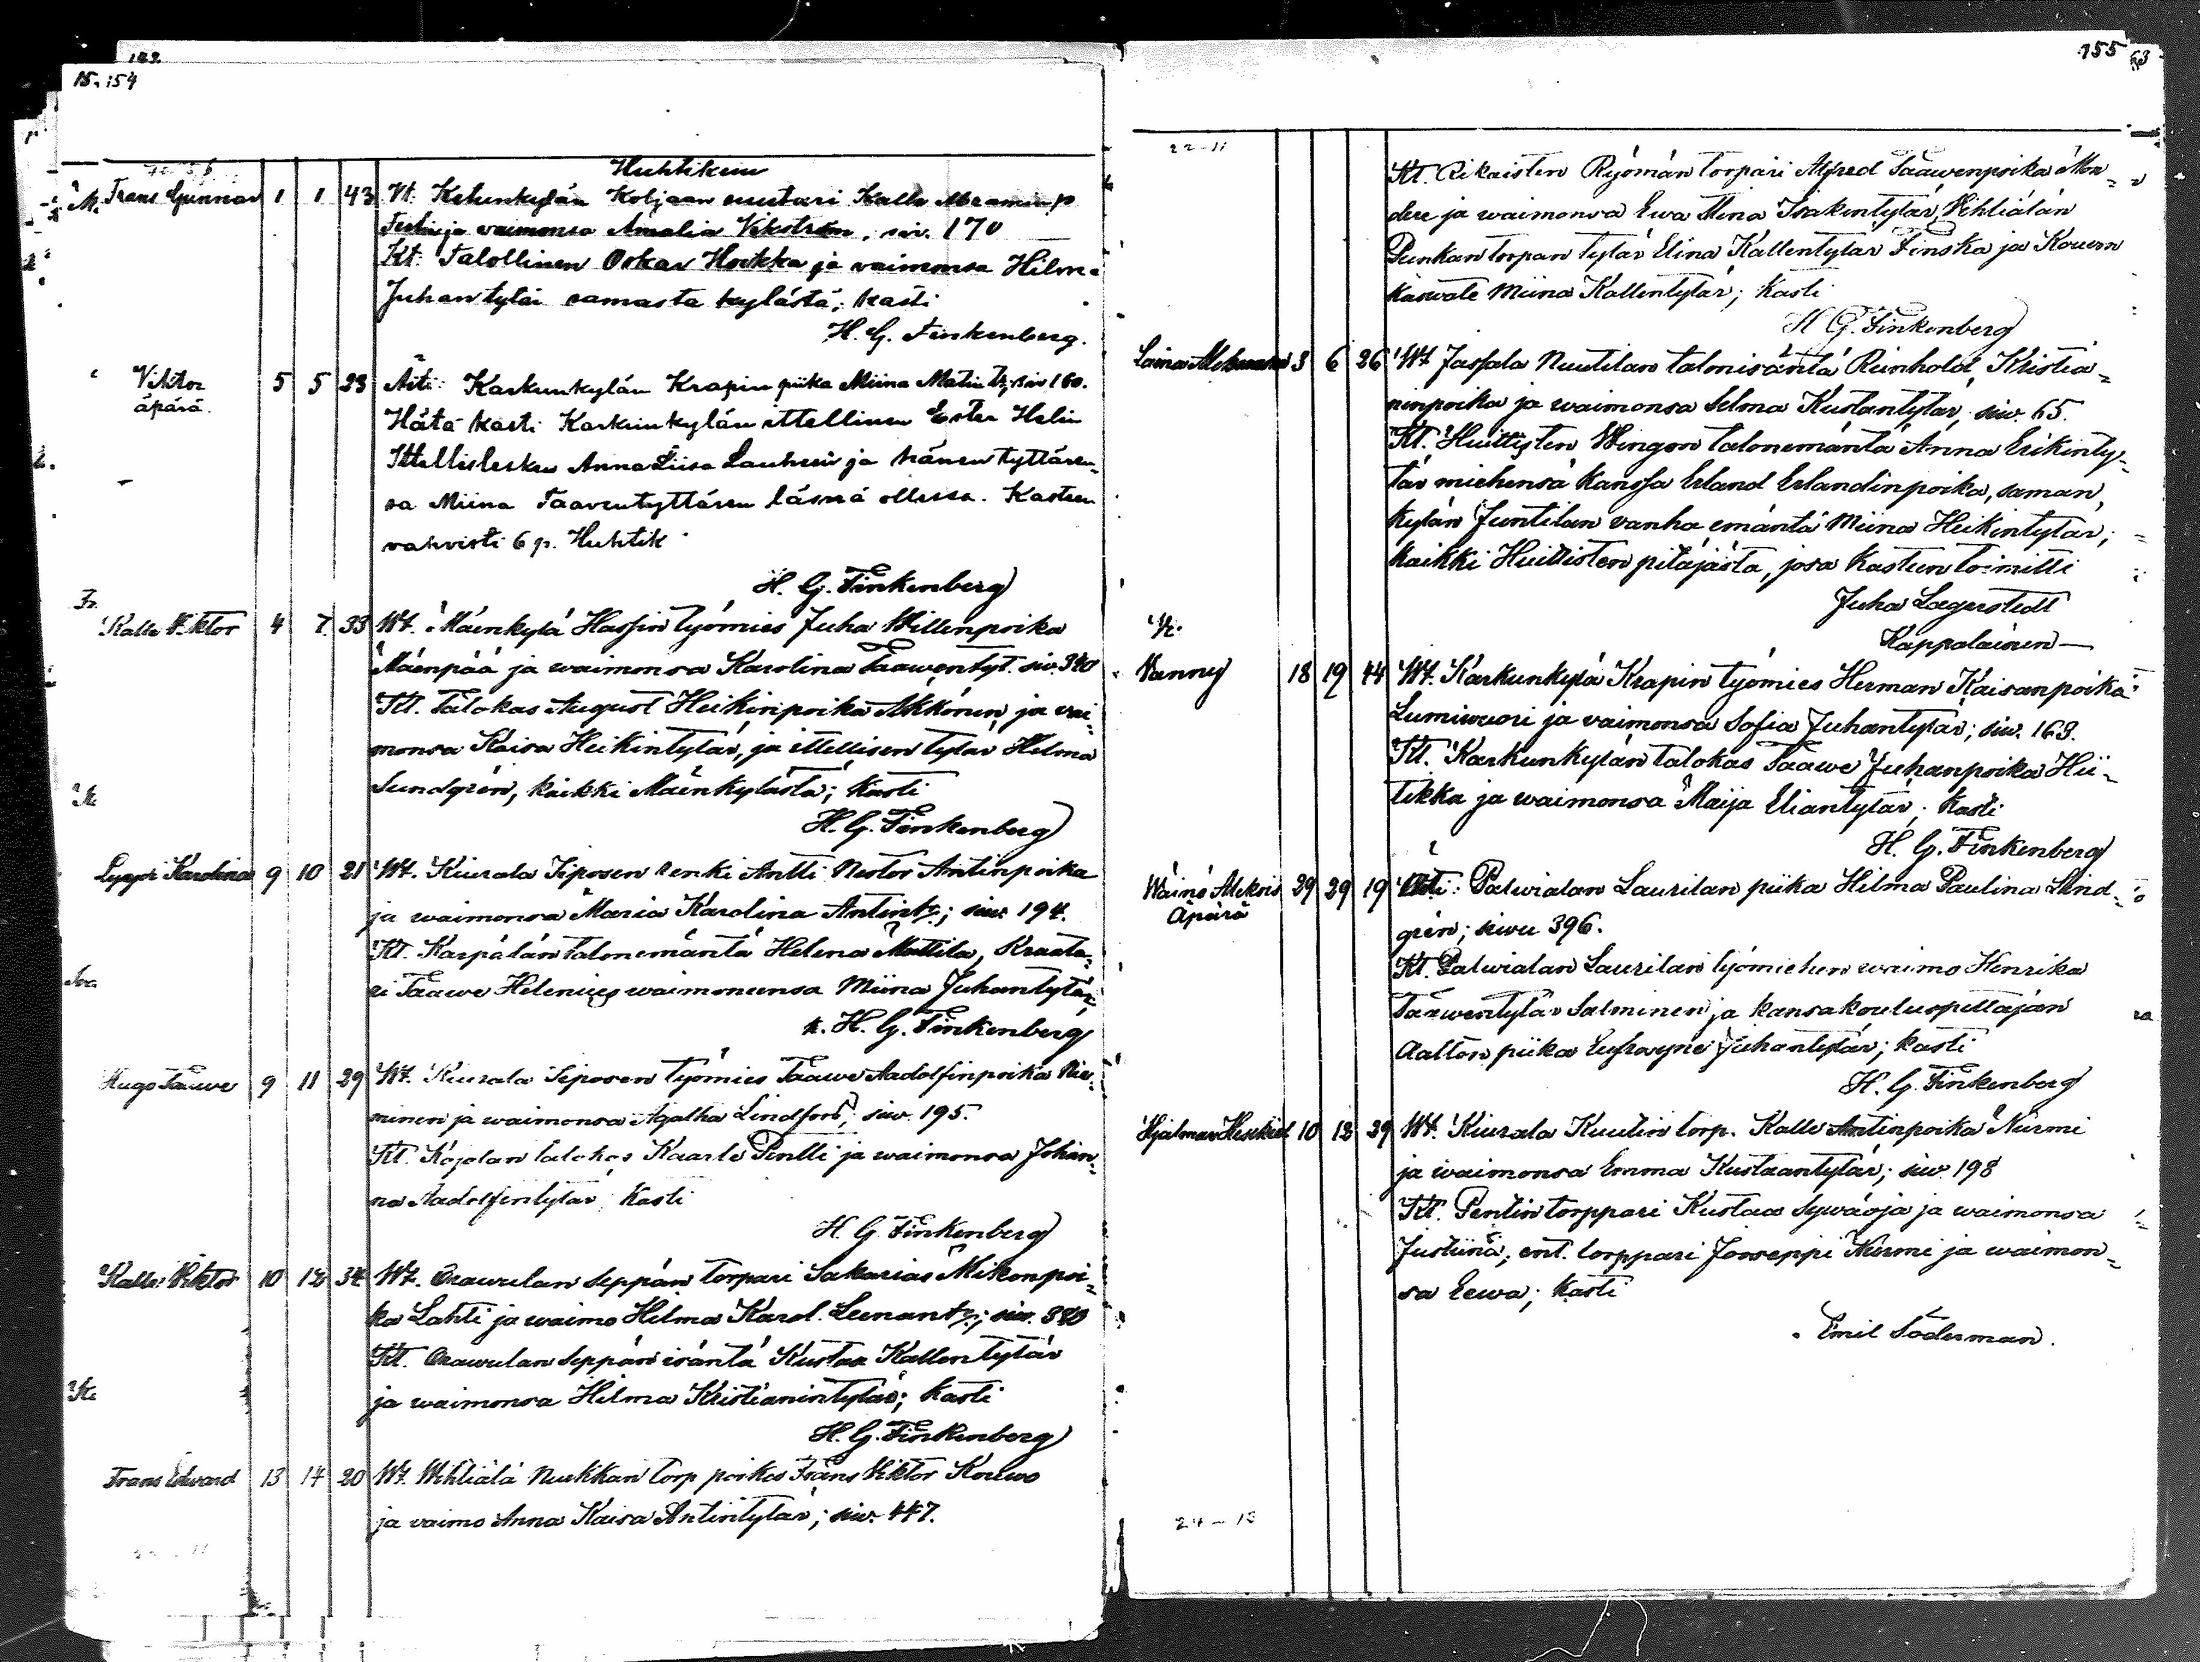 15. 154
Huhtikuu
Frans Gunnar 1 1 43 Vt. Ketunkylän Koljaan suutari Kalle
ja vaimonsa Amalia Vikström, siv. 170
Kt. Talollinen Oskar Hookka ja vaimonsa Hilma
Juhantytär samasta kylästä; kasti
H. G. Finkenberg.
Viktor 5 5 23 Äiti: Karkunkylän Krapin piika Miina Matin tr, siv 160.
äpärä.
Hätä kasti Karkunkylän ittellinen Ester Helin
Ittellislesken Anna Liisa ja hänen tyttären-
sa Miina Taaventyttären läsnä ollessa. Kasteen
vahvisti 6 p. Huhtik
H. G. Finkenberg
Kalle Viktor 4 7 33 Wt. Mäenkylä Hassin työmies Juha Willenpoika
Mäenpää ja waimonsa Karolina Taawentyt. siw. 340
Kt. Talokas August Heikinpoika Akkonen ja vai-
monsa Kaisa Heikintytär, ja ittellisen tytär Helma
Sundgrén, kaikki Mäenkylästä; Kasti
H. G. Finkenberg
Lyyyi Karolina 9 10 21 Wt. Kiurala Siposen renki Antti Nestor Antinpoika
ja waimonsa Maria Karolina Antintr; siw. 194.
Kt. Karpälän talonemäntä Helena Mattila, Kraata-
ri Taawe Helenius waimonensa Miina Juhantytär;
k. H. G. Finkenberg
Hugo Taawe 9 11 29 Wt. Kiurala Siposen työmies Taawe Aadolfinpoika Nie-
minen ja waimonsa Agatha Lindfors; siw. 195.
Kt. Kojolan talokas Kaarle Pentti ja waimonsa Johan-
na Aadolfintytär; Kasti
H. G. Finkenberg
Kalle Viktor 10 12 34 Wt. Orawulan Seppän torpari Sakarias Mikonpoi-
ka Lahti ja waimo Helma Karol. Leenantr; siw. 380
Kt. Orawulan Seppän isäntä Kustaa Kallentytär
ja waimonsa Hilma Kristianintytär; Kasti
H. G. Finkenberg
Frans Edward 13 14 20 Wt. Wehliälä Nuukkan torp poika Frans Viktor Kouwo
ja vaimo Anna Kaisa Antintytär; siw. 447.
155
22-11
Kt. Rikaisten Ryömän torpari Alfred Taawenpoika Mon-
dere ja waimonsa Ewa Stina Isakintytär, Wehliälän
Punkan torpan tytär Elina Kallentytär Finska ja Kouwon
kaswate Miina Kallentytär; Kasti
H. G. Finkenberg
Laina 3 6 26 Wt Jassala Nuutilan talonisäntä Reinhold Kristia-
ninpoika ja waimonsa Selma Kustantytär siw. 65.
Kt. Huittisten Wingon talonemäntä Anna Erikinty-
tär miehensä kanssa Erland Erlandinpoika, saman
kylän Juntilan vanha emäntä Miina Heikintytär;
kaikki Huittisten pitäjästä, josa Kasteen toimitti
Juha Lagerstedt
Kappalainen
Nanny 18 19 44 Wt. Karkunkylä Krapin työmies Herman Kaisanpoika
Lumiwuori ja vaimonsa Sofia Juhantytär; siw. 163.
Kt. Karkunkylän talokas Taawe Juhanpoika Hii-
tikka ja waimonsa Maija Eliantytär; Kasti
H. G. Finkenberg
Wäinö Aleksis 29 29 19 Äiti: Palwialan Laurilan piika Hilma Paulina Lind-
Äpärä
grén; siwu 396.
Kt. Palwialan Laurilan työmiehen waimo Henrika
Taawentytär Salminen ja kansakouluopettajan
Aalton piika Eufrosyne Juhantytär; kasti
H. G. Finkenberg
Hjalmar Hesekiel 10 12 29 Wt. Kiurala Kuutin torp. Kalle Antinpoika Nurmi
ja waimonsa Emma Kustaantytär; siw. 198
Kt. Pentin torppari Kustaa Sywäoja ja waimonsa
Justiina, ent. torppari Jooseppi Nurmi ja waimon-
sa Eewa; Kasti
Emil Söderman.
24-13